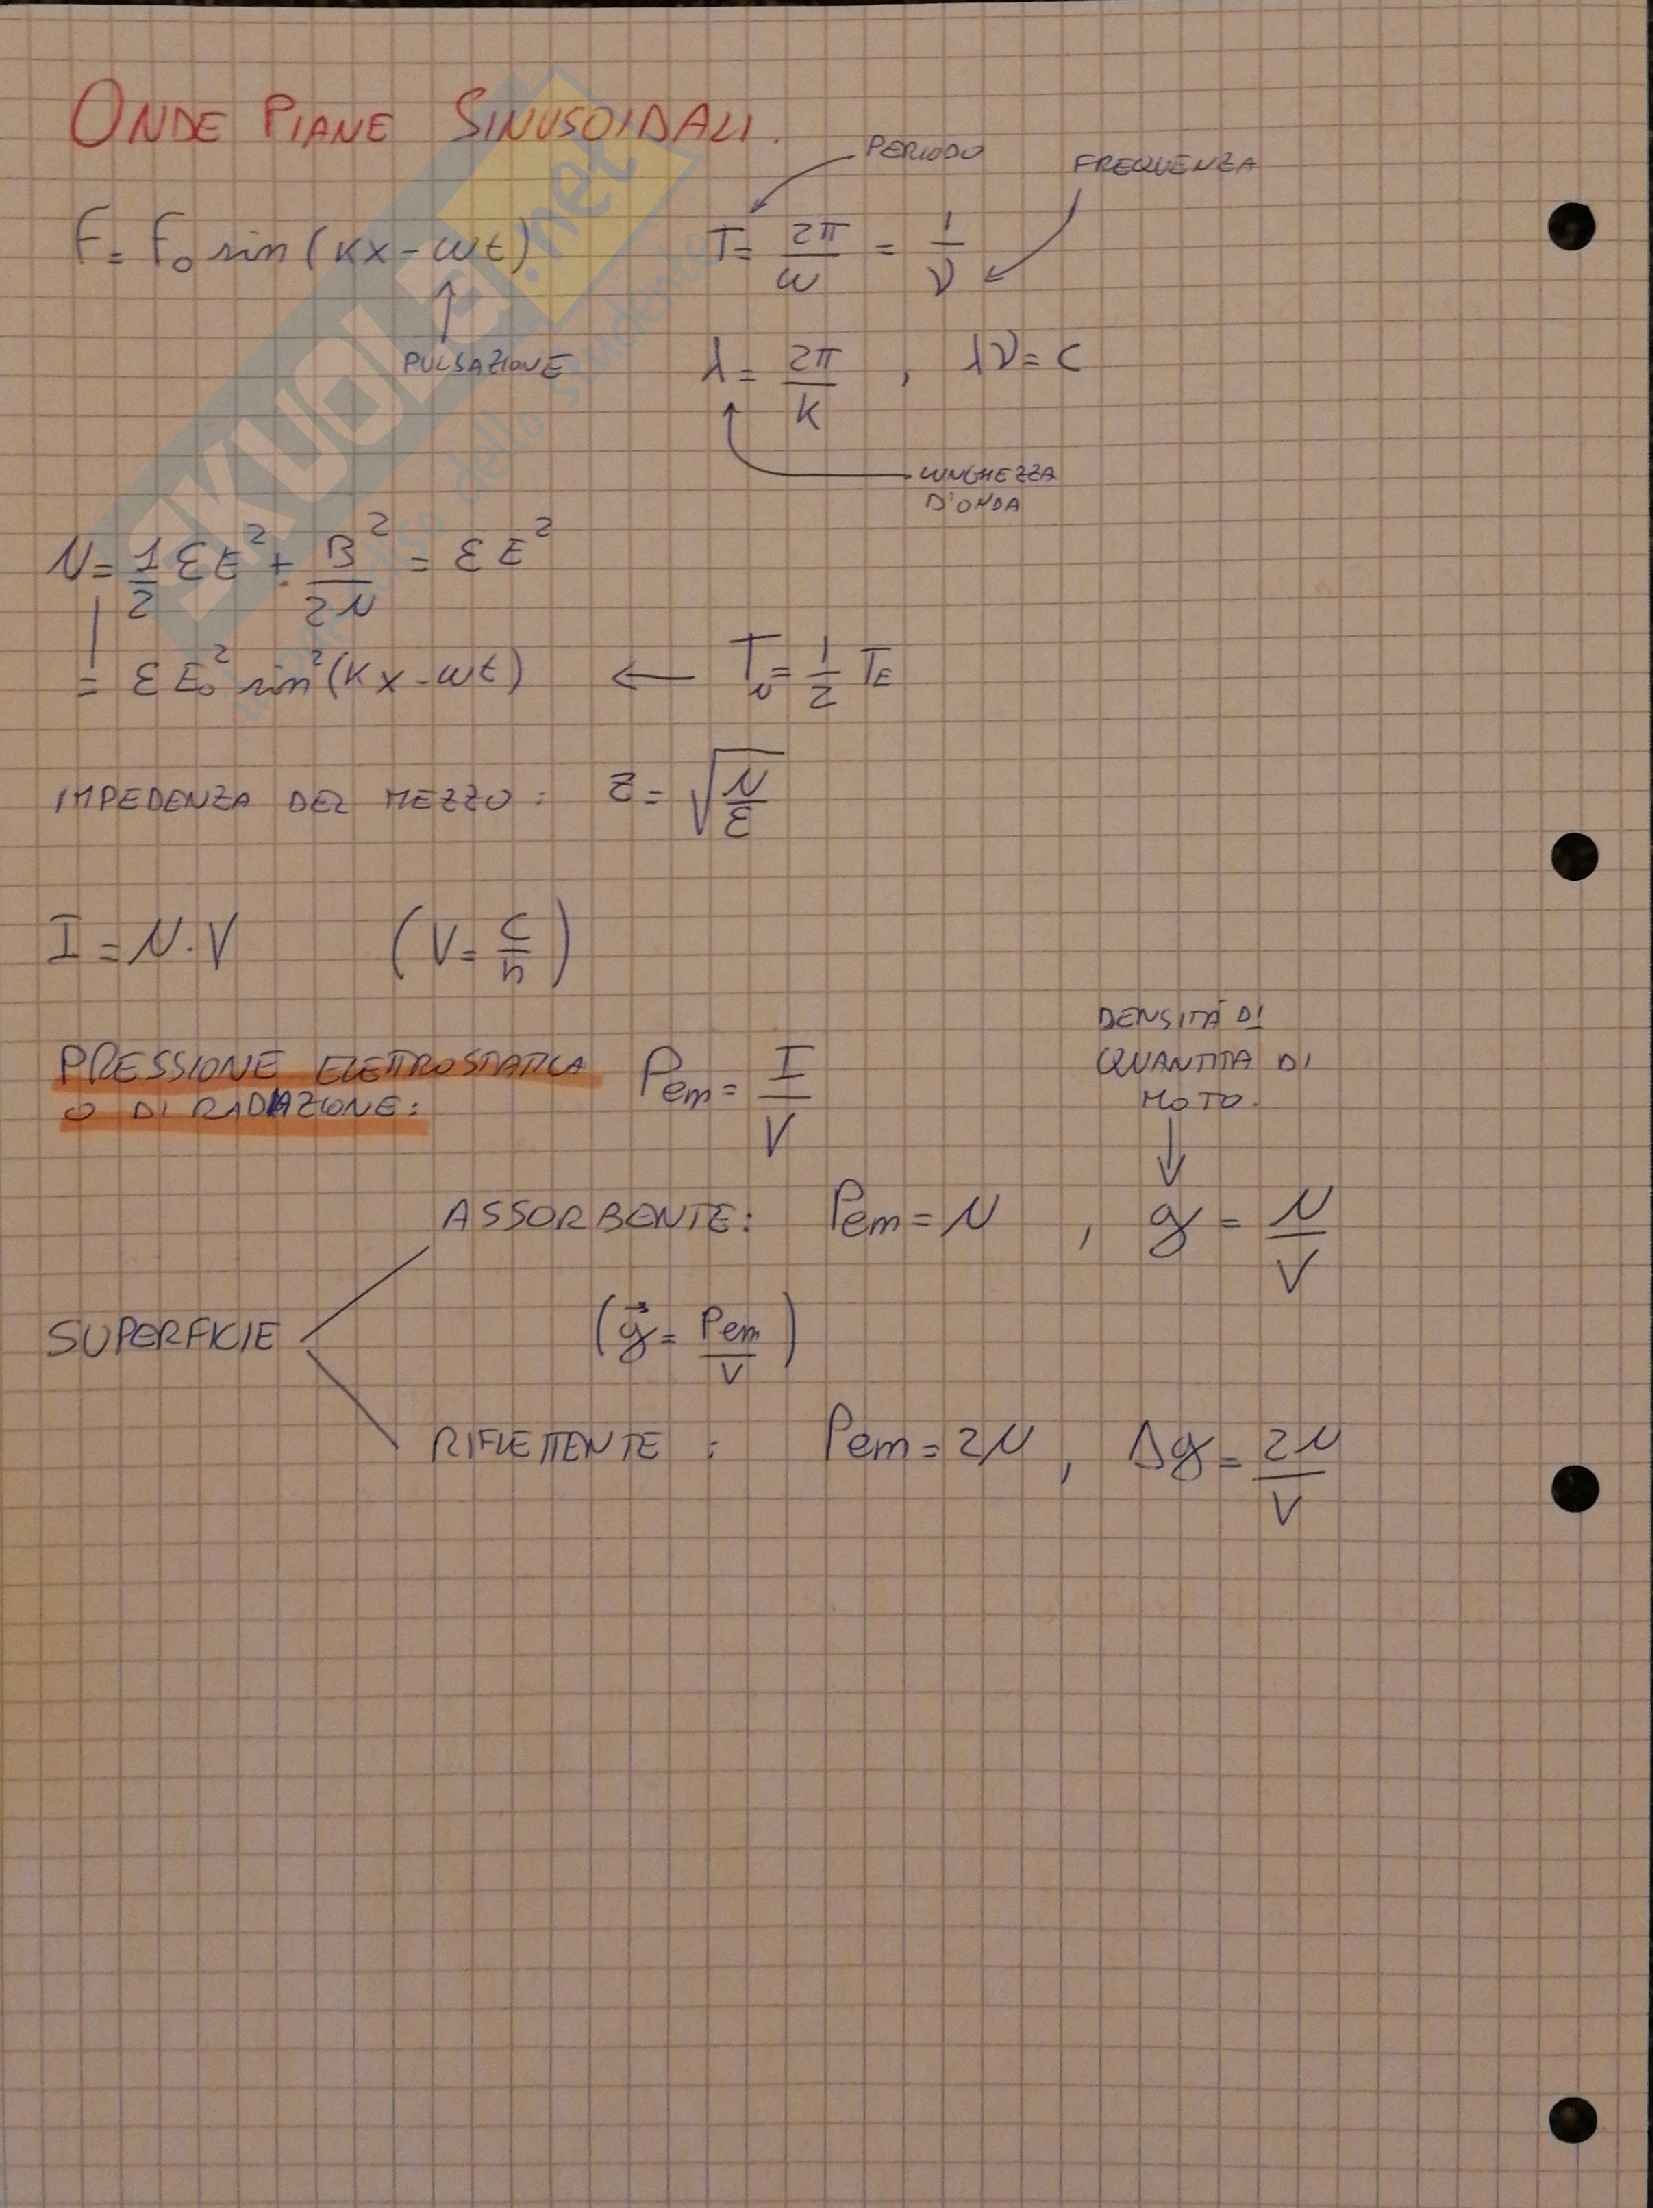 ONDE PIANE SINUSOIDALI.
PERIODO
FREQUENZA
F = F₀ sin(kx - ωt)
T = 2π/ω = 1/ν
PULSAZIONE
λ = 2π/k , λν = c
LUNGHEZZA
D'ONDA
μ = 1/2 εE² + B²/2μ = εE²
= εE₀² sin²(kx - ωt) ← Tᵤ = 1/2 T_E
IMPEDENZA DEL MEZZO: Z = √(μ/ε)
I = μ · V (V = c/n)
DENSITÀ DI
QUANTITA DI
MOTO.
PRESSIONE ELETTROSTATICA
O DI RADIAZIONE:
Pem = I/V
ASSORBENTE: Pem = μ , g = μ/V
SUPERFICIE
(g⃗ = Pem/V)
RIFLETTENTE : Pem = 2μ , Δg = 2μ/V
SKUOLA.net